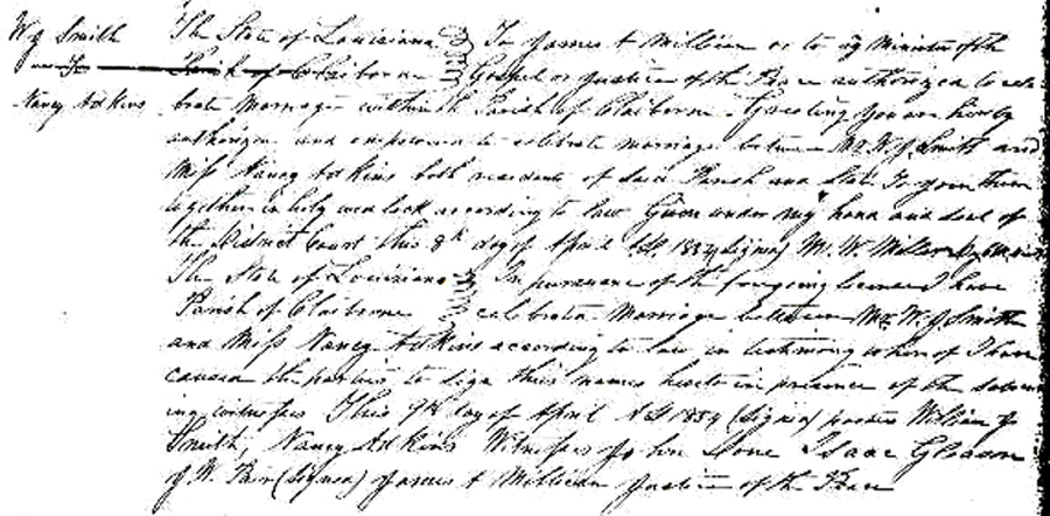 W J Smith
to
Nancy Adkins
The State of Louisiana
Parish of Claiborne
To James A Millican or to any Minister of the
Gospel or Justice of the Peace authorized to cele
brate Marriage within the Parish of Claiborne Greeting You are hereby
authorized and empowered to celebrate marriage between Mr. W. J. Smith and
Miss Nancy Adkins both residents of said Parish and State To join them
together in holy wedlock according to law Given under my hand and seal of
the District Court this 8th day of April 1854 (Signed) M. W. Miller
The State of Louisiana
Parish of Claiborne
In pursuance of the foregoing license I have
celebrated Marriage between Mr. W. J Smith
and Miss Nancy Adkins according to law in testimony whereof I have
caused the parties to sign their names hereto in presence of the
ing witnesses This 9th day of April AD 1854 (Signed) parties William J
Smith, Nancy Adkins Witnesses John Isaac Gleason
J. W. (Signed) James A Millican Justice of the Peace